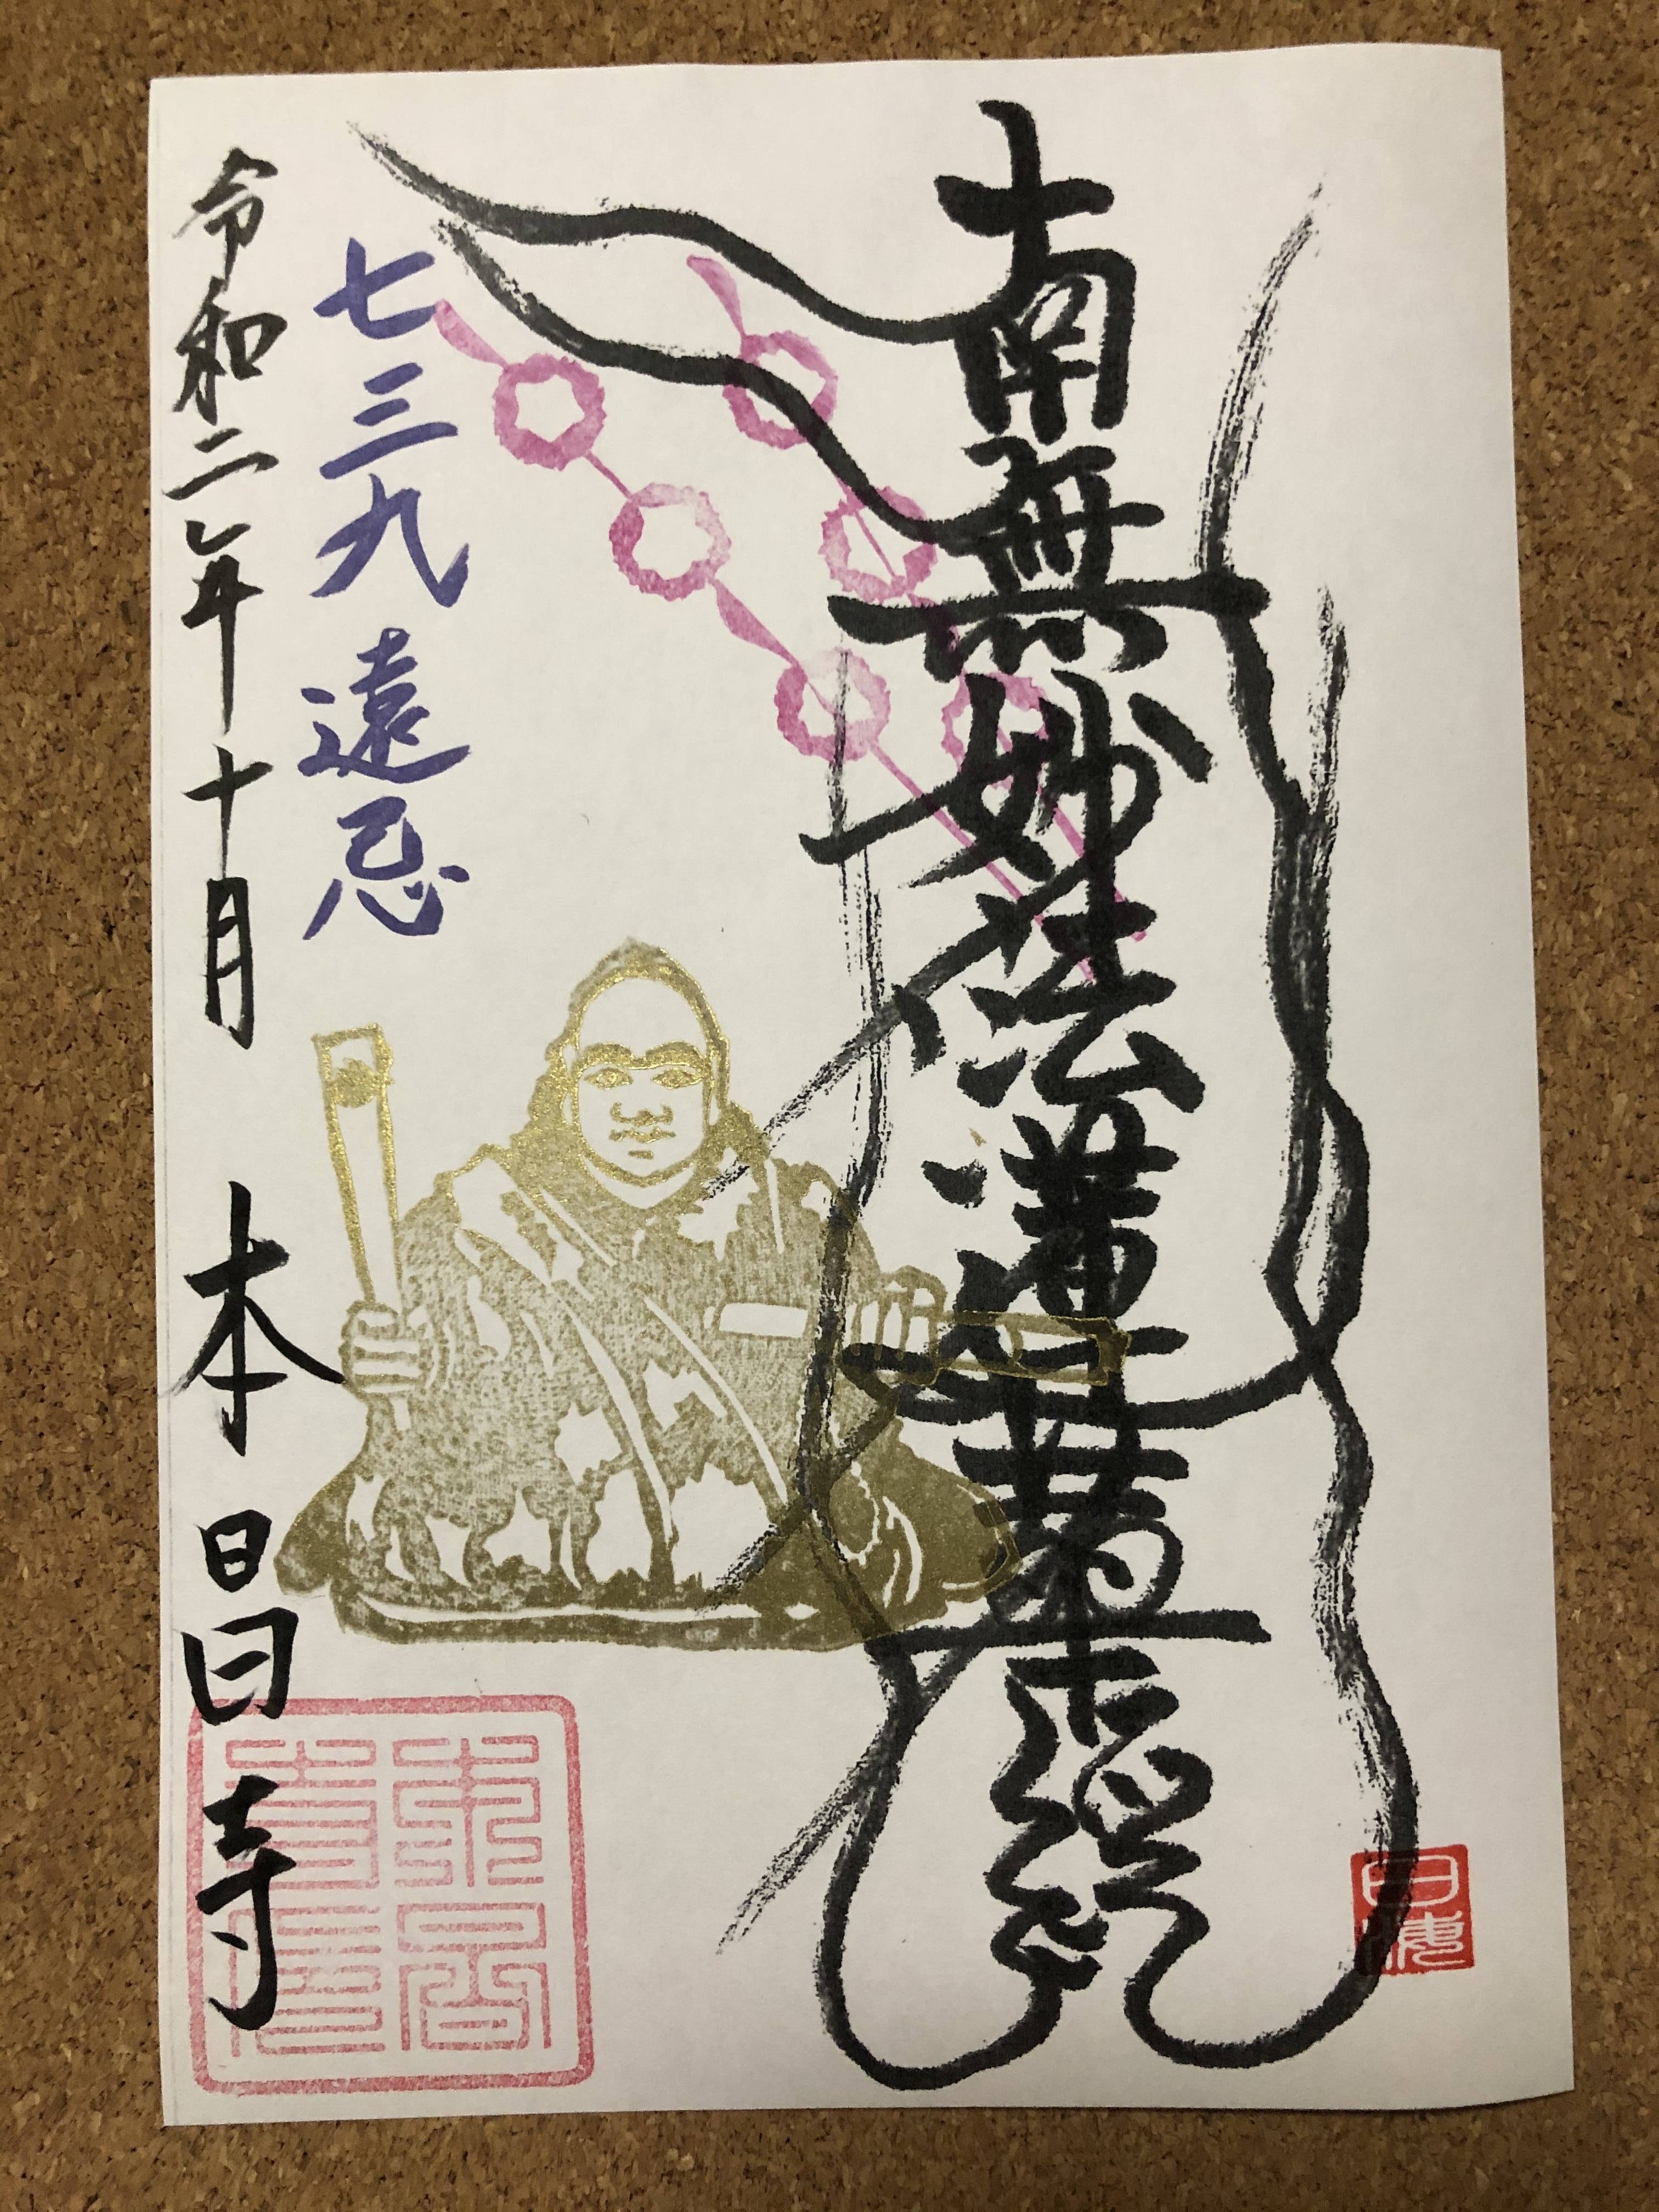 南無妙法蓮華経
七三九遠忌
令和二年十月 本昌寺